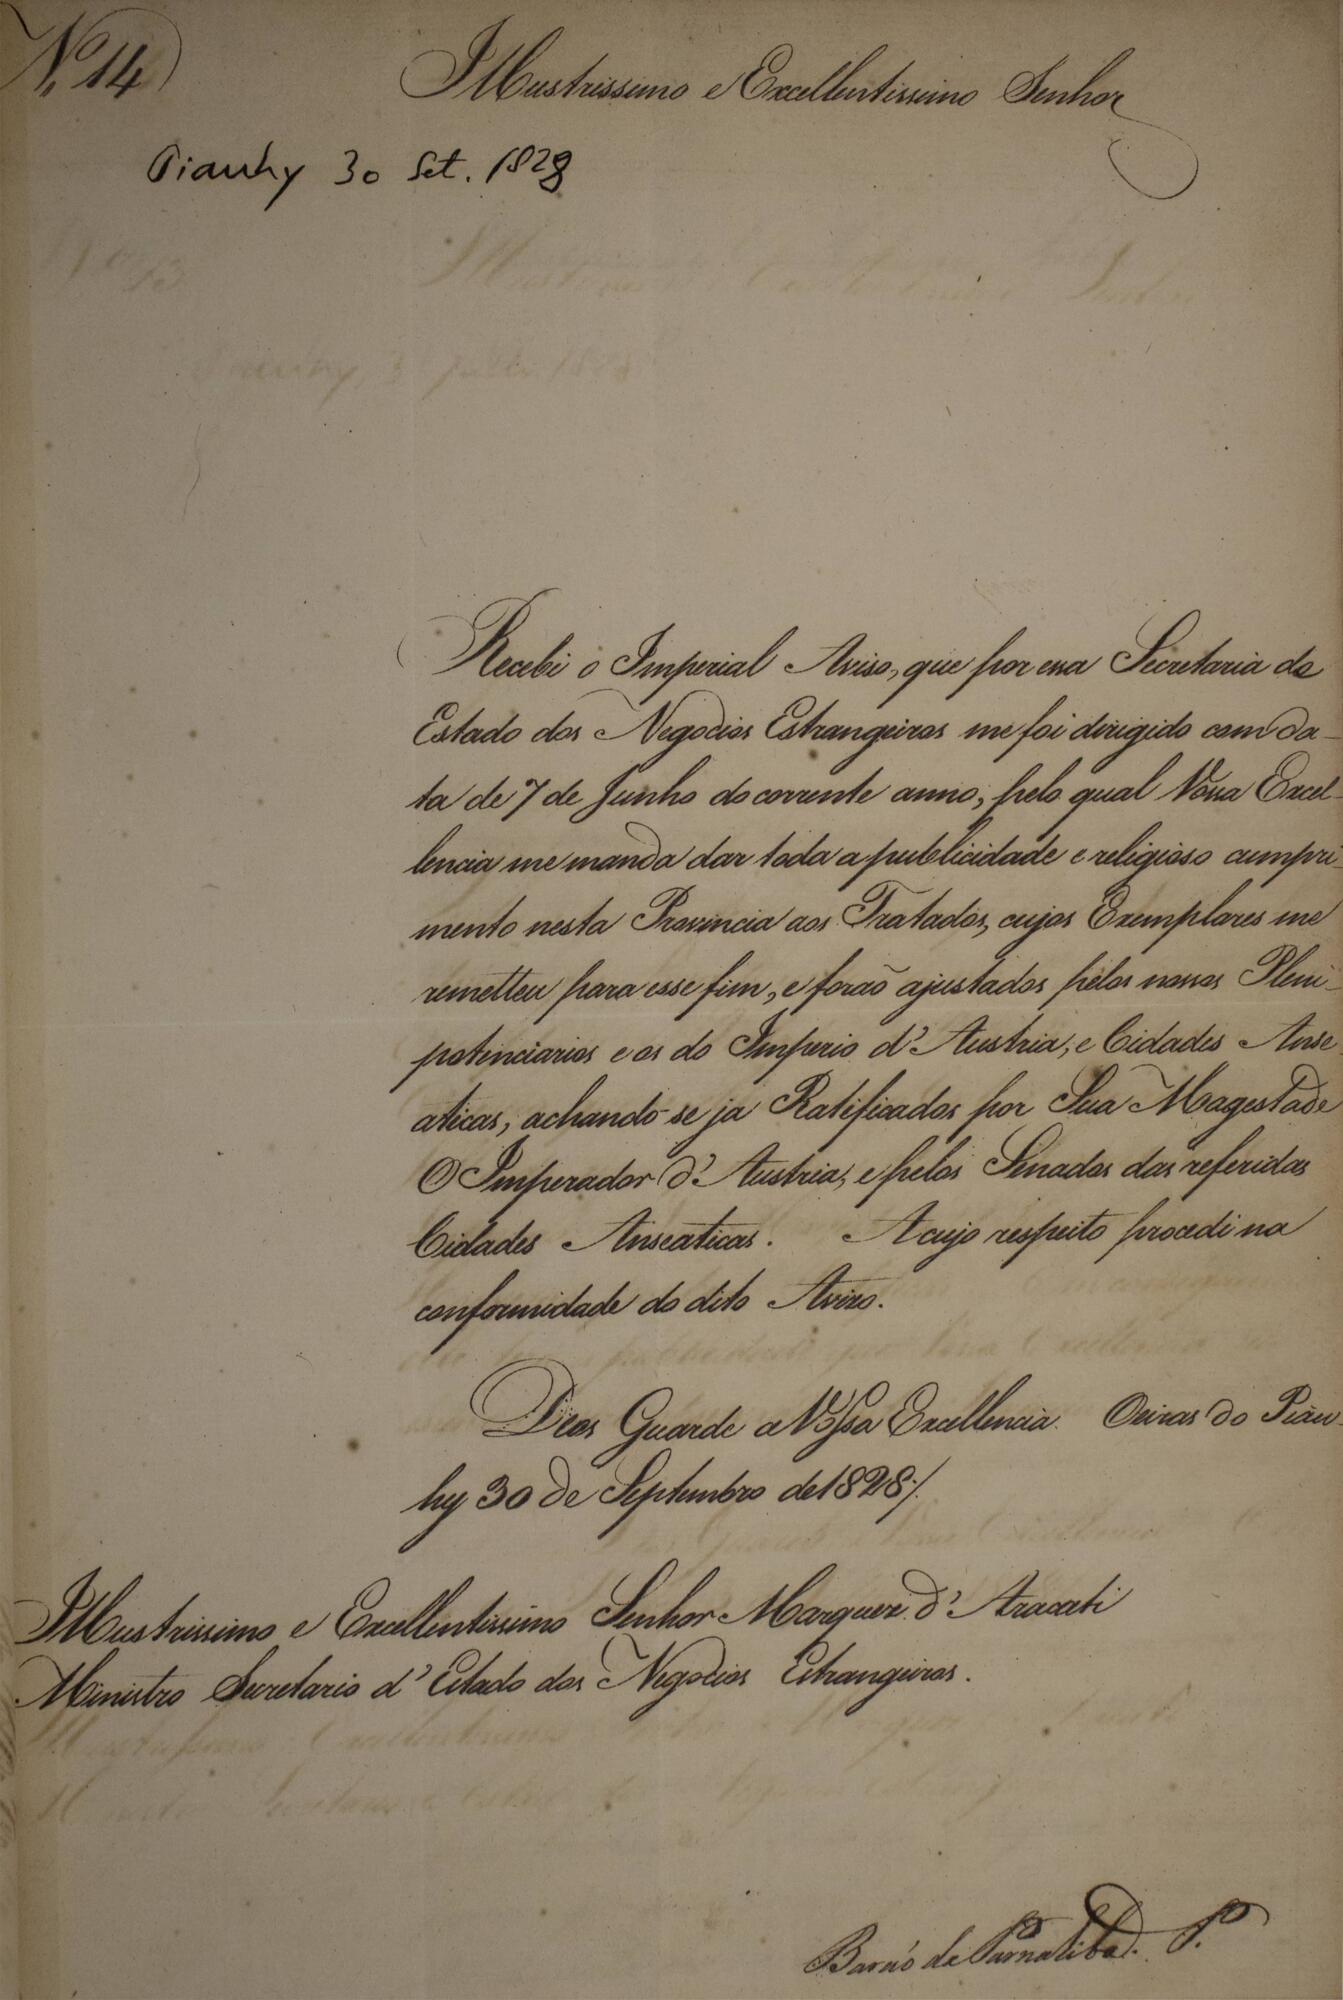 N.º 14
Illustrissimo e Excellentissimo Senhor
Piauhy 30 Set. 1828
Recebi o Imperial Aviso, que por essa Secretaria de
Estado dos Negocios Estrangeiros me foi dirigido com da-
ta de 7 de Junho do corrente anno, pelo qual Vossa Excel-
lencia me manda dar toda a publicidade e religioso cumpri-
mento nesta Provincia aos Tratados, cujos Exemplares me
remetteu para esse fim, e forão ajustados pelos nossos Pleni-
potenciarios e os do Imperio d'Austria, e Cidades Anse-
aticas, achando-se ja Ratificados por Sua Magestade
O Imperador d'Austria, e pelos Senados das referidas
Cidades Anseaticas. A cujo respeito procedi na
conformidade do dito Avizo.
Deos Guarde a Vossa Excellencia. Oeiras do Piau-
hy 30 de Septembro de 1828 ./.
Illustrissimo e Excellentissimo Senhor Marquez d'Aracati
Ministro Secretario d'Estado dos Negocios Estrangeiros.
Barão da Parnatiba. P.